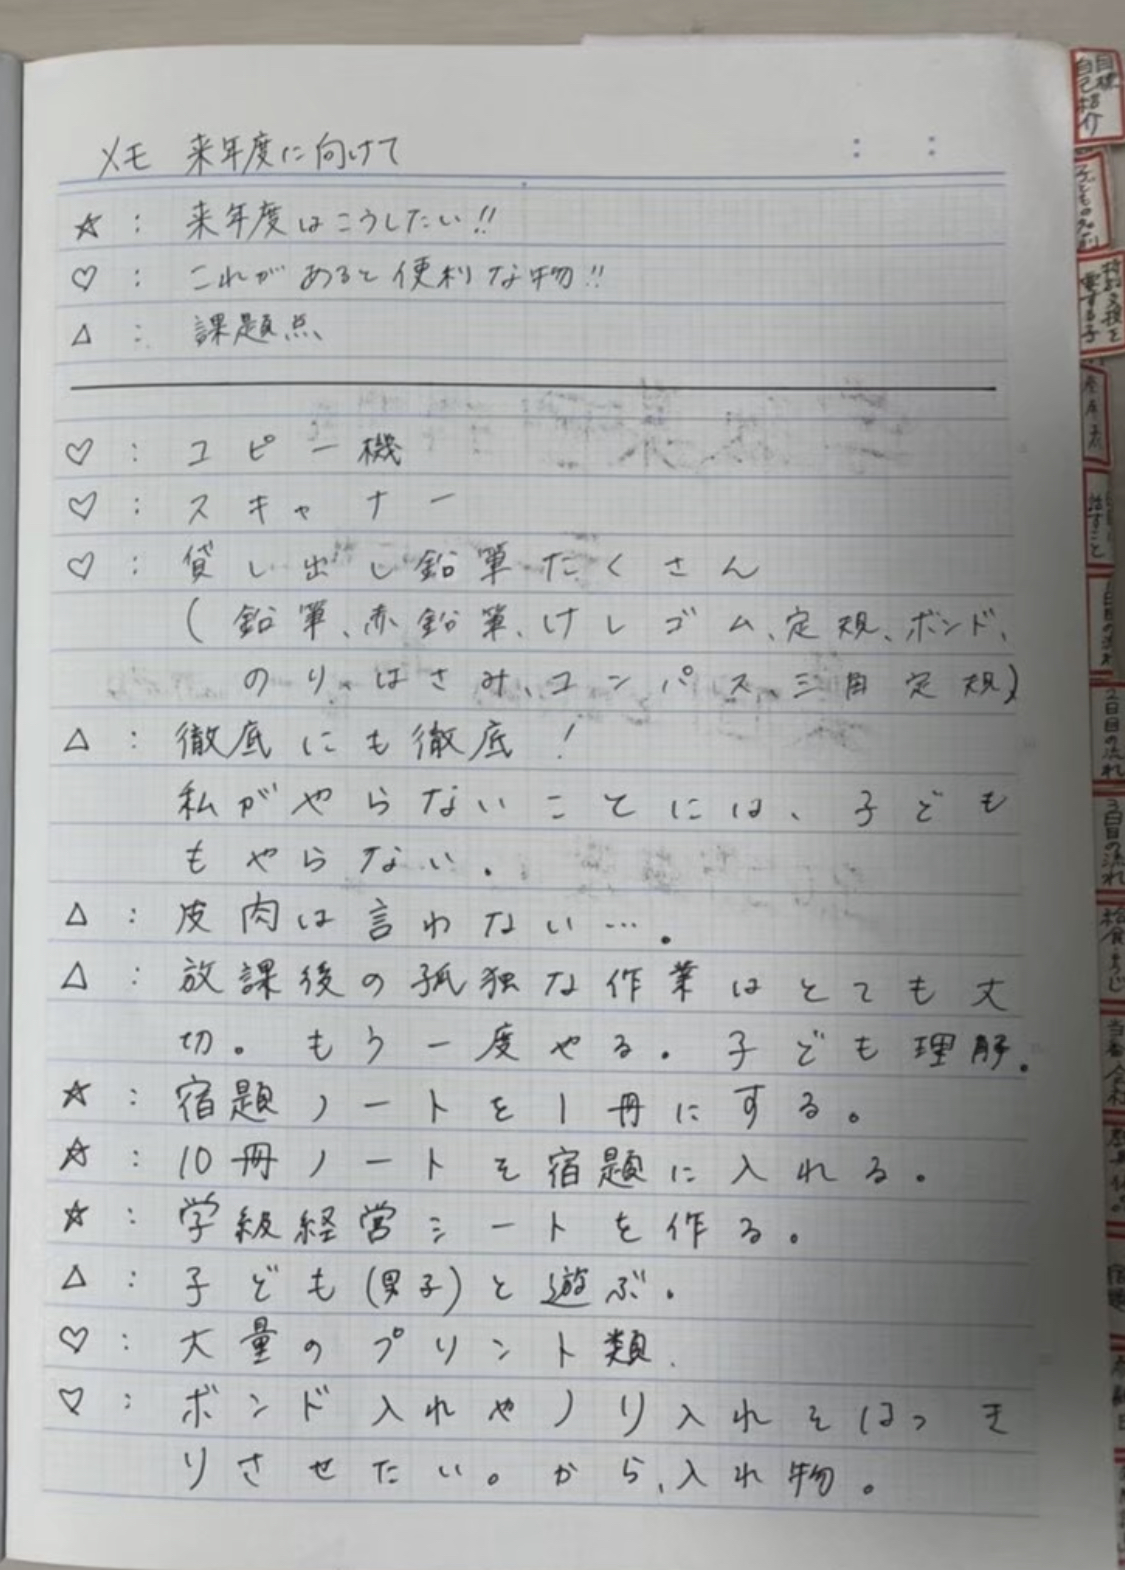 メモ 来年度に向けて
☆ : 来年度はこうしたい!!
♡ : これがあると便利な物!!
△ : 課題点、
♡ : コピー機
♡ : スキャナー
♡ : 貸し出し鉛筆たくさん
(鉛筆、赤鉛筆、けしゴム、定規、ボンド、
のり、はさみ、コンパス、三角定規)
△ : 徹底にも徹底!
私がやらないことには、子ども
もやらない。
△ : 皮肉は言わない…。
△ : 放課後の孤独な作業はとても大
切。もう一度やる。子ども理解。
☆ : 宿題ノートを1冊にする。
☆ : 10冊ノートを宿題に入れる。
☆ : 学級経営シートを作る。
△ : 子ども(男子)と遊ぶ。
♡ : 大量のプリント類.
♡ : ボンド入れやノリ入れをはっき
りさせたい。から、入れ物。
目標
自己紹介
子どもの名前
特別支援を
要する子
1日目の流れ
2日目の流れ
3日目の流れ
給食そうじ
宿題